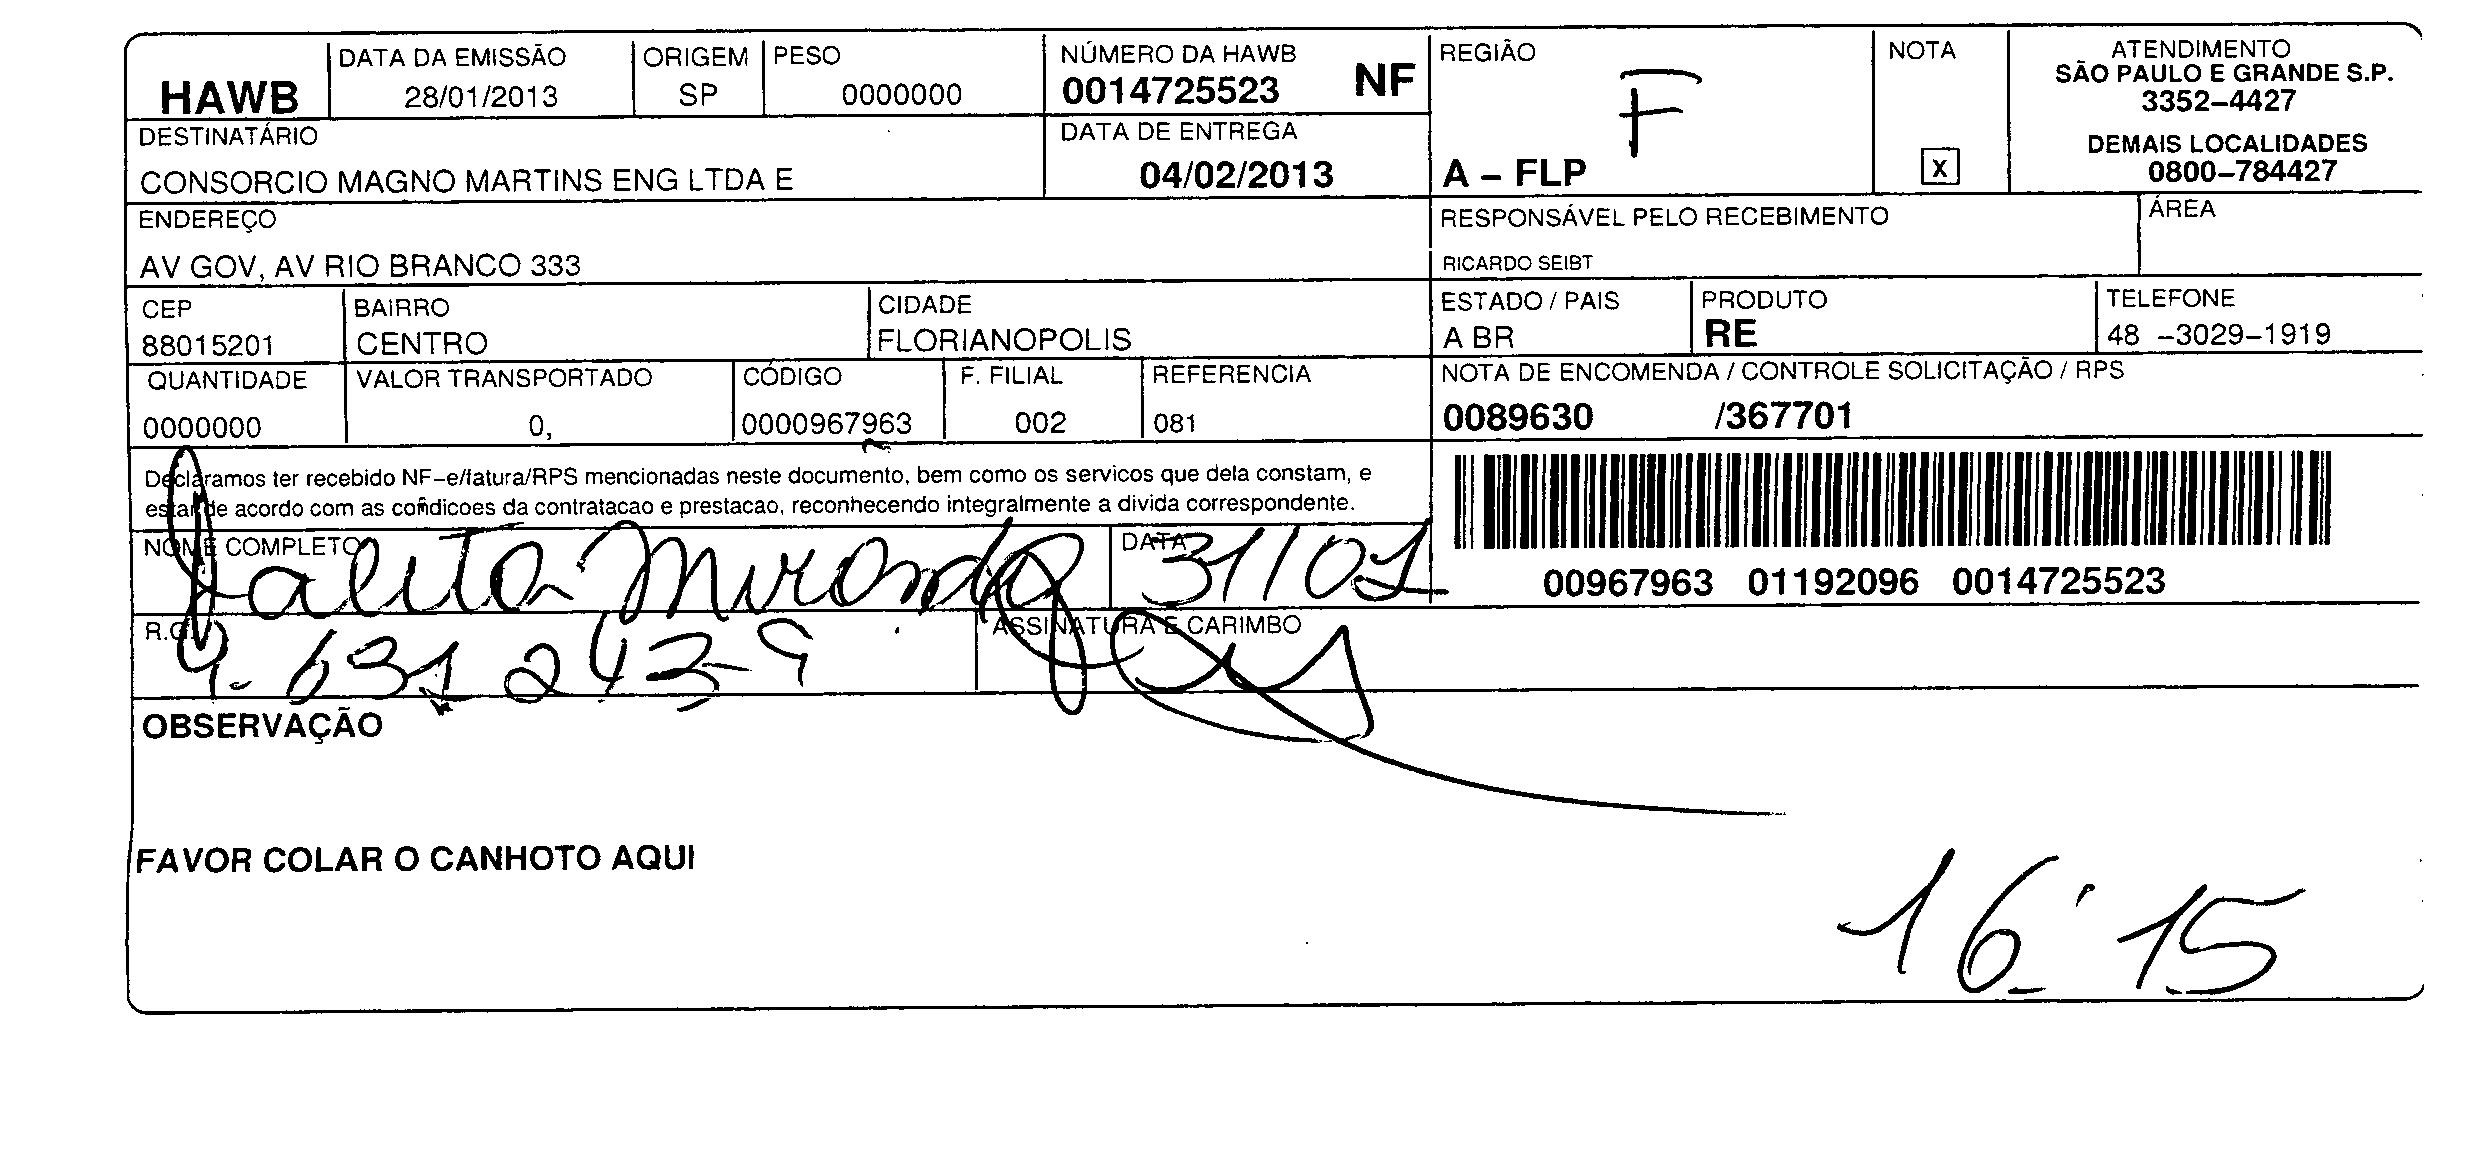 HAWB
DATA DA EMISSÃO
28/01/2013
ORIGEM
SP
PESO
0000000
NÚMERO DA HAWB
0014725523 NF
DATA DE ENTREGA
04/02/2013
REGIÃO
F
A – FLP
NOTA
X
ATENDIMENTO
SÃO PAULO E GRANDE S.P.
3352–4427
DEMAIS LOCALIDADES
0800–784427
DESTINATÁRIO
CONSORCIO MAGNO MARTINS ENG LTDA E
ENDEREÇO
AV GOV, AV RIO BRANCO 333
RESPONSÁVEL PELO RECEBIMENTO
RICARDO SEIBT
ÁREA
CEP
88015201
BAIRRO
CENTRO
CIDADE
FLORIANOPOLIS
ESTADO / PAIS
A BR
PRODUTO
RE
TELEFONE
48 –3029–1919
QUANTIDADE
0000000
VALOR TRANSPORTADO
0,
CÓDIGO
0000967963
F. FILIAL
002
REFERENCIA
081
NOTA DE ENCOMENDA / CONTROLE SOLICITAÇÃO / RPS
0089630 /367701
Declaramos ter recebido NF–e/fatura/RPS mencionadas neste documento, bem como os servicos que dela constam, e
estar de acordo com as condicoes da contratacao e prestacao, reconhecendo integralmente a divida correspondente.
00967963 01192096 0014725523
NOME COMPLETO
Miranda
DATA
31/01
R.G.
631 243-9
ASSINATURA E CARIMBO
OBSERVAÇÃO
FAVOR COLAR O CANHOTO AQUI
16:15